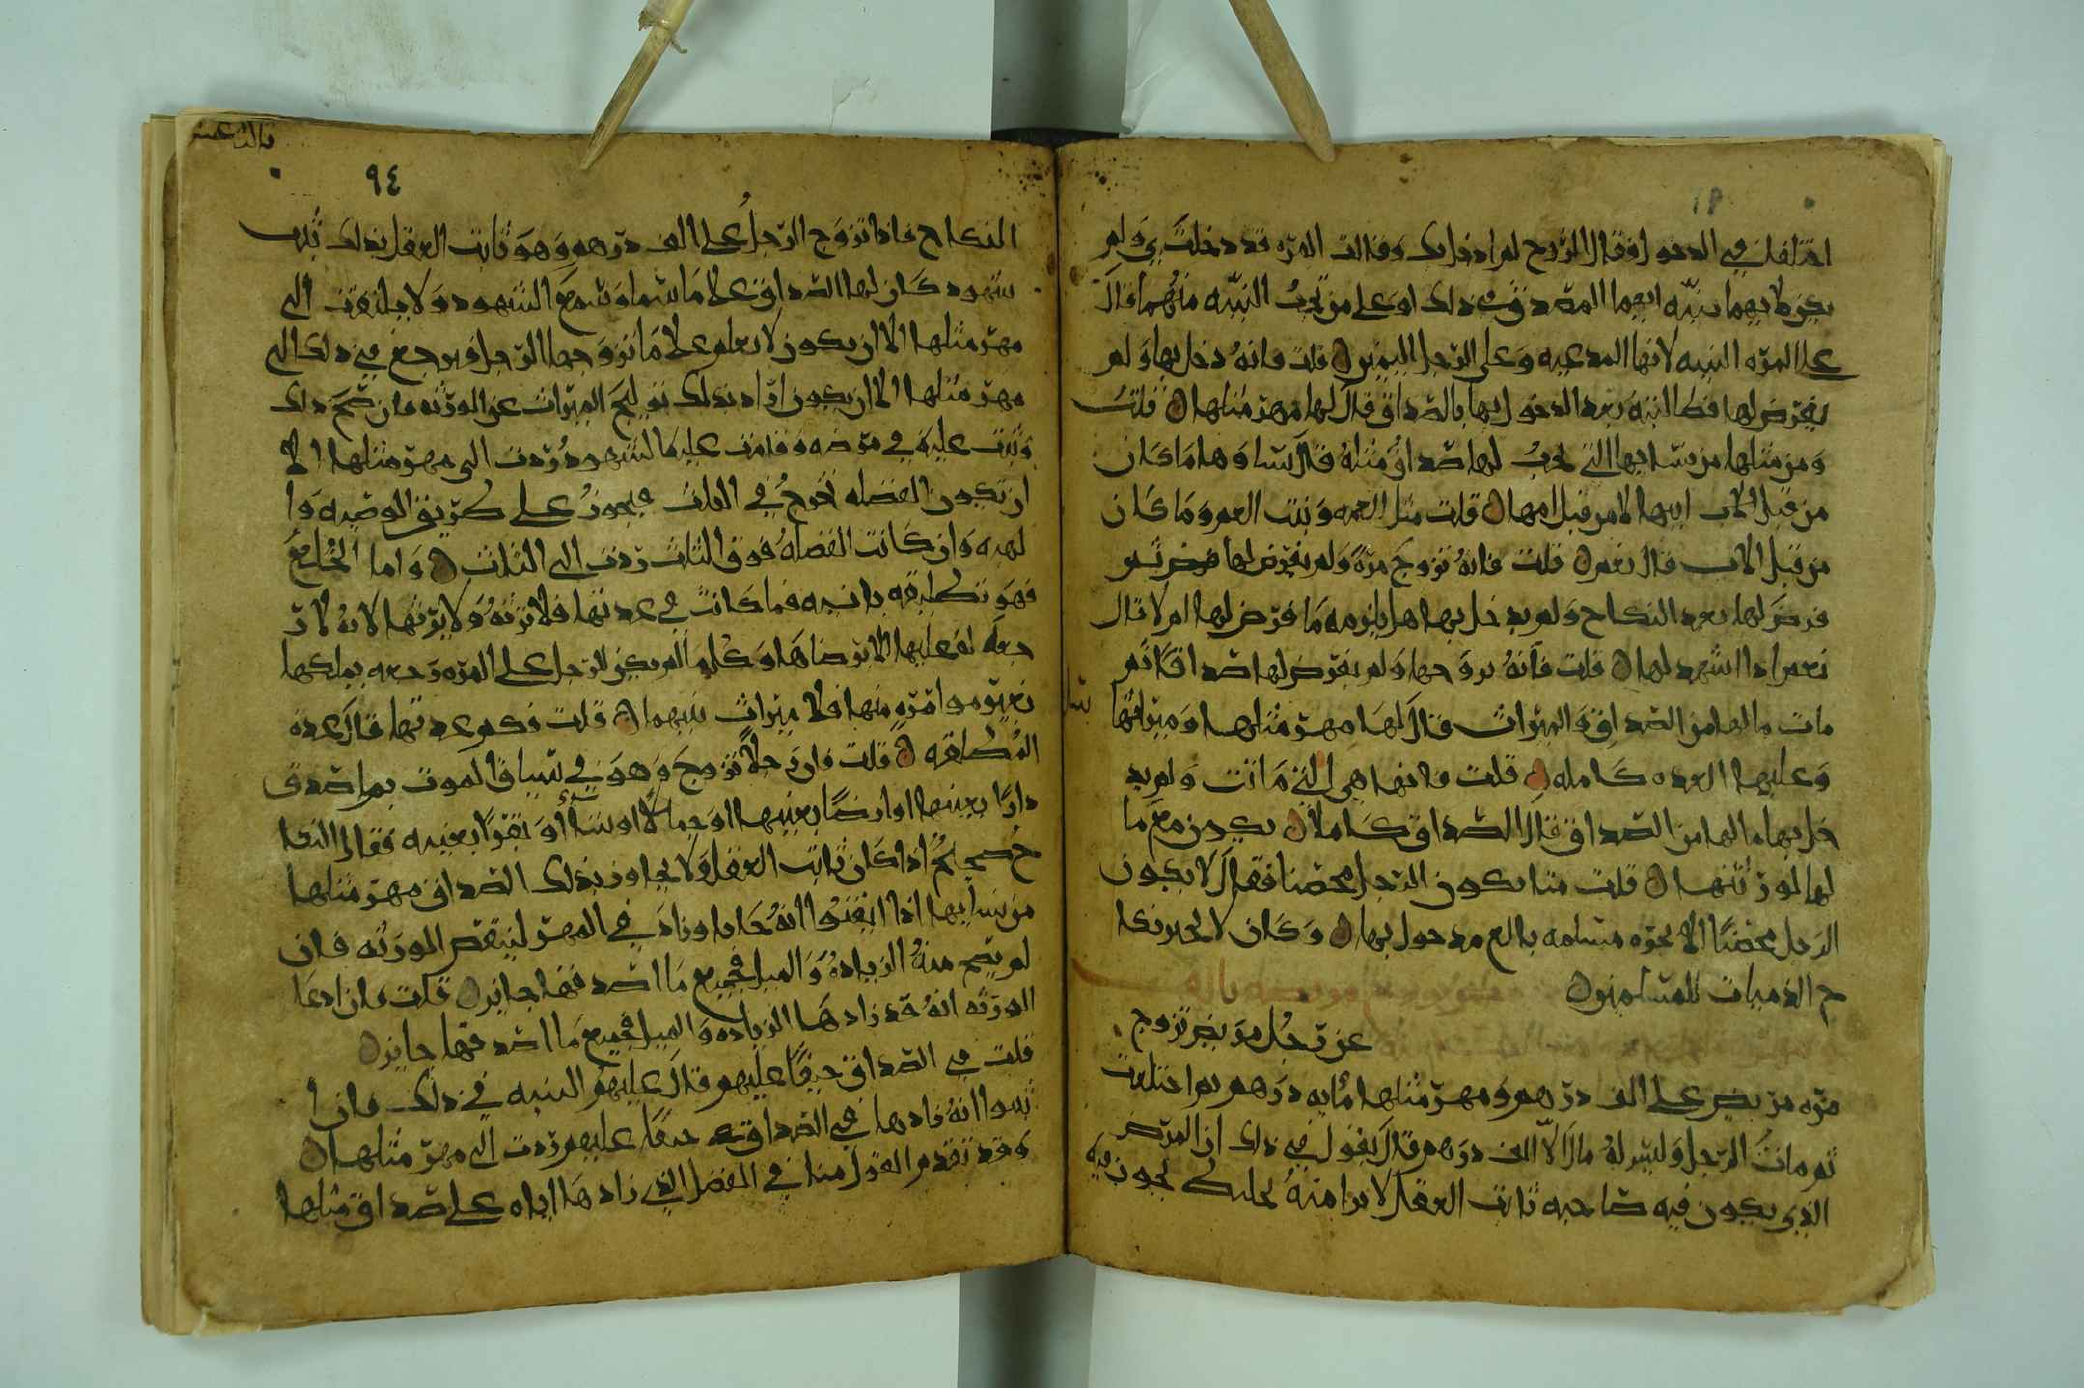 اختلفا في الدخول فقال الزوج لم ادخل بك وقالت المره قد دخلت بي ولم
يكن لايهما بينه ايهما المصدق في ذلك او على من تجب البينه منهما قال
على المره البينه لانها المدعيه وعلى الرجل اليمين قلت فانه دخل بها ولم
يفرض لها فطالبته بعد الدخول بها بالصداق قال لها مهر مثلها قلت
ومن مثلها من نسايها التي تجب لها صداق مثله قال نساوها ما كان
من قبل الاب ابيها لا من قبل امها قلت مثل العمه وبنت العم وما كان
من قبل الاب قال نعم قلت فانه تزوج مره ولم يفرض لها فرض ثم
فرض لها بعد النكاح ولم يدخل بها هل يلزمه ما فرض لها ام لا قال
نعم اذا اشهد لها قلت فانه تزوجها ولم يفرض لها صداقا ثم
مات ما لها من الصداق والميراث قال لها مهر مثلها وميراثها
وعليها العده كامله قلت فانها هي التي ماتت ولم يد
خل بها ما لها من الصداق قال الصداق كاملا يكون مع ما
لها لورثتها قلت متا يكون الرجل محصنا فقال لا يكون
الرجل محصنا الا بحره مسلمه بالغ مدخول بها وكان لا يجيز نكا
ح الذميات للمسلمين
عن رجل مريض تزوج
مره مريض على الف درهم ومهر مثلها مايه درهم ثم اختلعت
ثم مات الرجل وليس له مال الا الف درهم قال يقول في ذلك ان المرض
الذي يكون فيه صاحبه ثابت العقل لا يوامنه يجوز فيه
٩٤
النكاح فاذا تزوج الرجل على الف درهم وهو ثابت العقل بذلك
شهود كان لها الصداق على ما سما وسمع الشهود ولا يلتفت الى
مهر مثلها الا ان يكون لا يعلم على ما تزوجها الرجل فيرجع في ذلك الى
مهر مثلها الا ان يكون اراد بذلك توليج الميراث عن الورثه فان صح ذلك
وثبت عليه في مرضه وقامت عليه الشهود ردت الى مهر مثلها الا
ان تكون الفضله تخرج في الثلث فيجوز على طريق الوصيه وا
لهبه وان كانت الفضله فوق الثلث ردت الى الثلث واما الخلع
فهو تطليقه باينه فما كانت في عدتها فلا ترثه ولا يرثها لانه لا ر
جعه له عليها الا برضاها وكلما لم يكن للرجل على المره رجعه يملكها
بغير موامره منها فلا ميراث بينهما قلت فكم عدتها قال عده
المطلقه قلت فان رجلا تزوج وهو في سياق الموت بمره اصدق
دارا بعينها او ارضا بعينها او جمالا او شاء او بقرا بعينه فقال النكا
ح صحيح اذا كان ثابت العقل ولا يجاوز بذلك الصداق مهر مثلها
من نسايها اذا ايقنوا انه حابا وزاد في المهر لينقص الورثه فان
لم يصح منه الزياده والميل فجميع ما اصدقها جايز قلت فان ادعا
الورثه انه قد زادها الزياده والميل فجميع ما اصدقها جايز
قلت في الصداق حيفا عليهم قال عليهم البينه في ذلك فان ا
ثبتوا انه زادها في الصداق حيفا عليهم ردت الى مهر مثلها
وقد تقدم القول منا في الفضل الذي زادها اياه على صداق مثلها